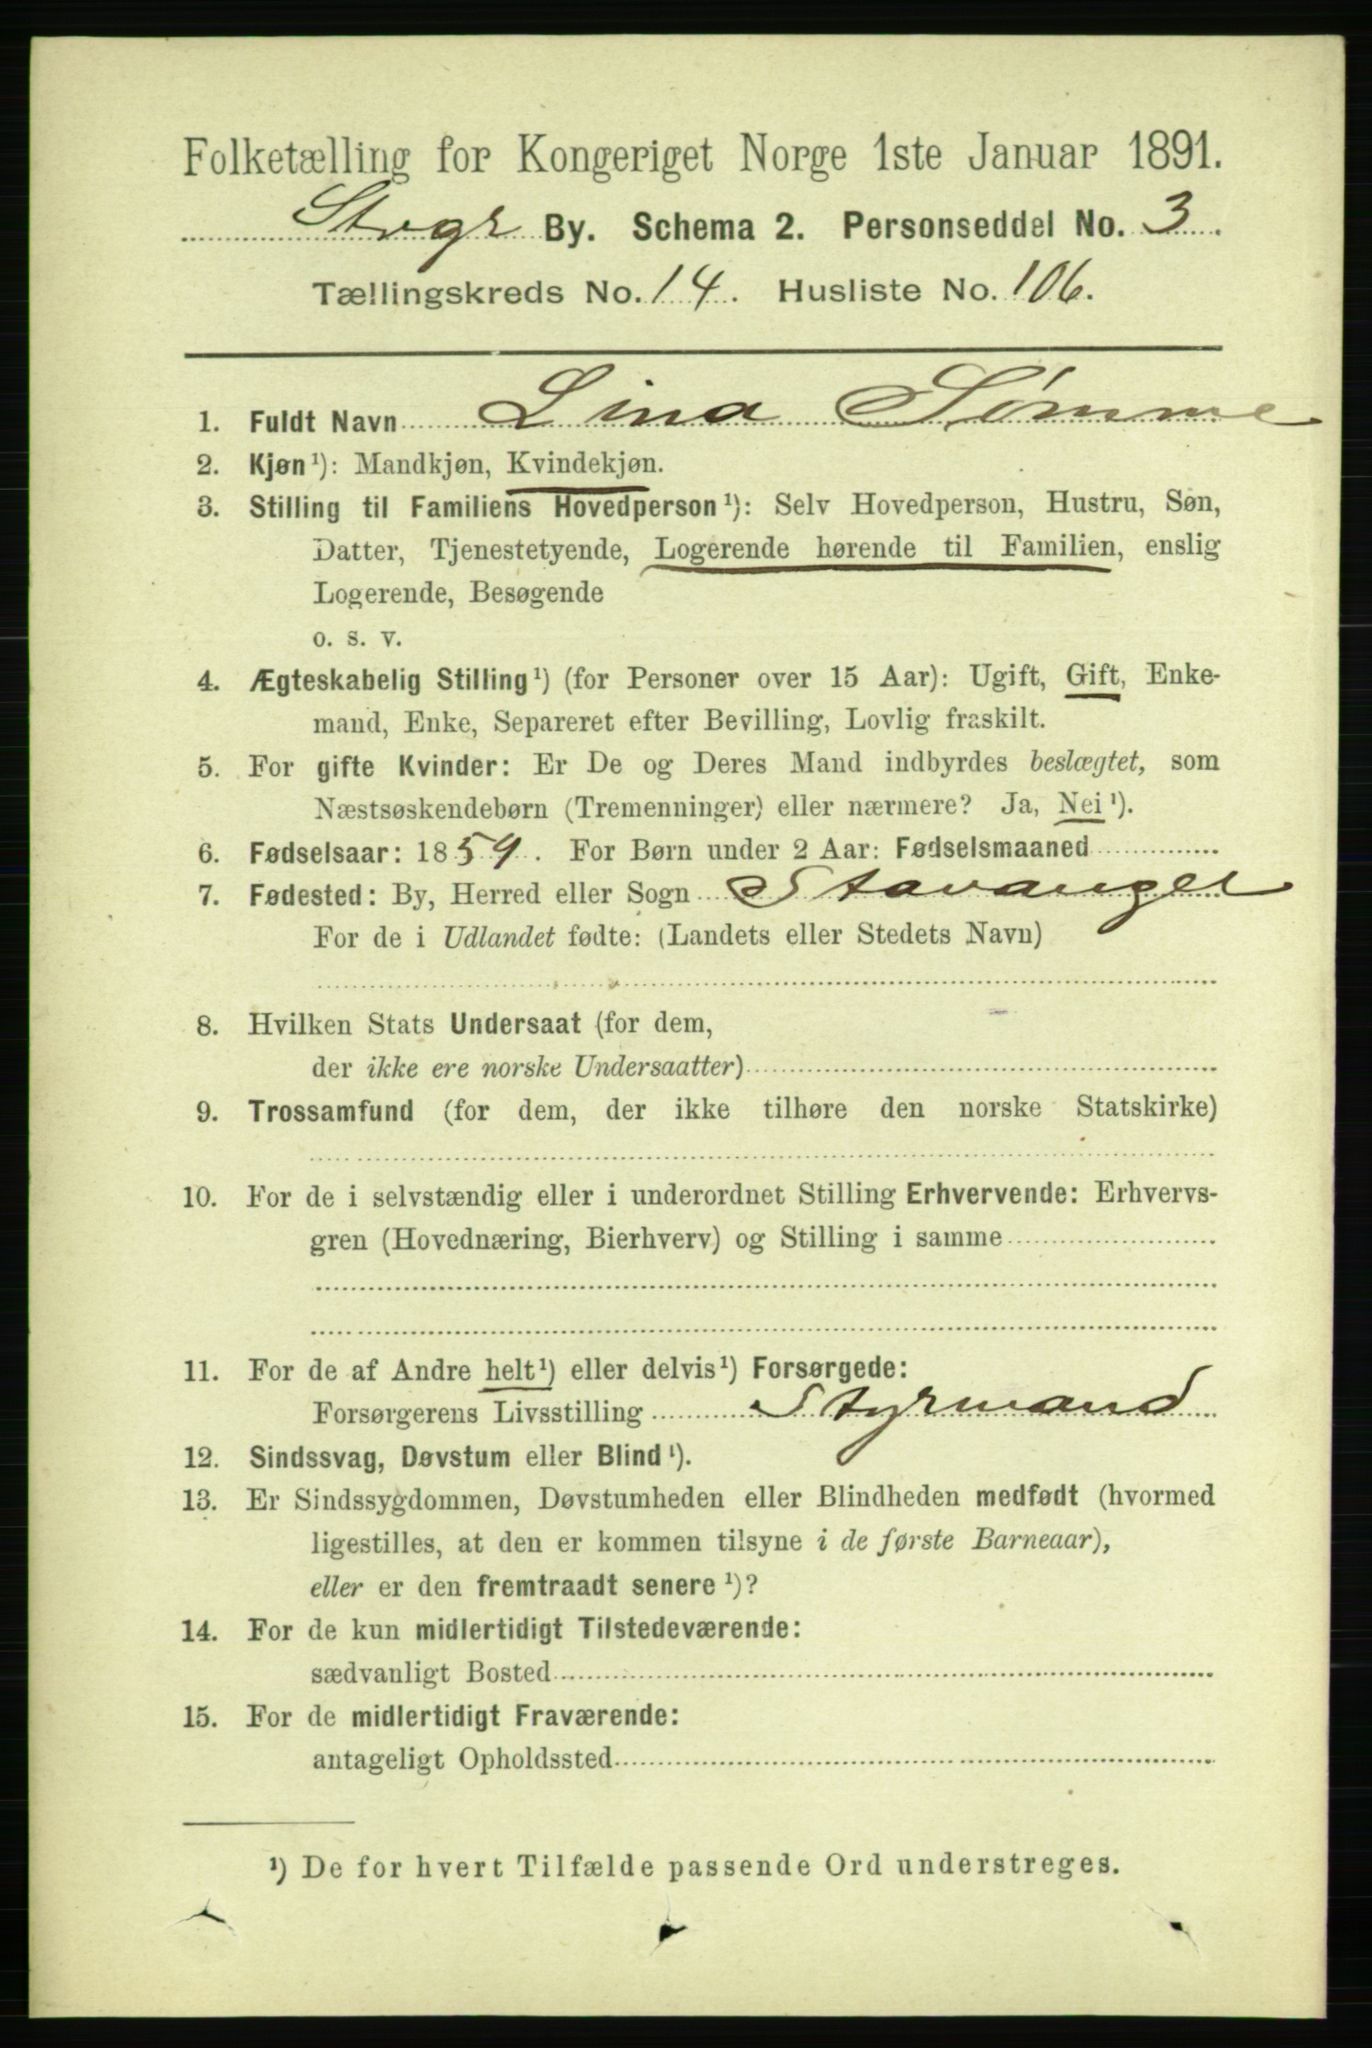 Folketælling for Kongeriget Norge 1ste Januar 1891.
Stvgr By. Schema 2. Personseddel No. 3.
Tællingskreds No. 14. Husliste No. 106.
1. Fuldt Navn Lina Sømme
2. Kjøn¹): Mandkjøn, Kvindekjøn.
3. Stilling til Familiens Hovedperson¹): Selv Hovedperson, Hustru, Søn,
Datter, Tjenestetyende, Logerende hørende til Familien, enslig
Logerende, Besøgende
o. s. v.
4. Ægteskabelig Stilling¹) (for Personer over 15 Aar): Ugift, Gift, Enke-
mand, Enke, Separeret efter Bevilling, Lovlig fraskilt.
5. For gifte Kvinder: Er De og Deres Mand indbyrdes beslægtet, som
Næstsøskendebørn (Tremenninger) eller nærmere? Ja, Nei¹).
6. Fødselsaar: 1859. For Børn under 2 Aar: Fødselsmaaned
7. Fødested: By, Herred eller Sogn Stavanger
For de i Udlandet fødte: (Landets eller Stedets Navn)
8. Hvilken Stats Undersaat (for dem,
der ikke ere norske Undersaatter)
9. Trossamfund (for dem, der ikke tilhøre den norske Statskirke)
10. For de i selvstændig eller i underordnet Stilling Erhvervende: Erhvervs-
gren (Hovednæring, Bierhverv) og Stilling i samme
11. For de af Andre helt¹) eller delvis¹) Forsørgede:
Forsørgerens Livsstilling Styrmand
12. Sindssvag, Døvstum eller Blind¹).
13. Er Sindssygdommen, Døvstumheden eller Blindheden medfødt (hvormed
ligestilles, at den er kommen tilsyne i de første Barneaar),
eller er den fremtraadt senere¹)?
14. For de kun midlertidigt Tilstedeværende:
sædvanligt Bosted
15. For de midlertidigt Fraværende:
antageligt Opholdssted
¹) De for hvert Tilfælde passende Ord understreges.